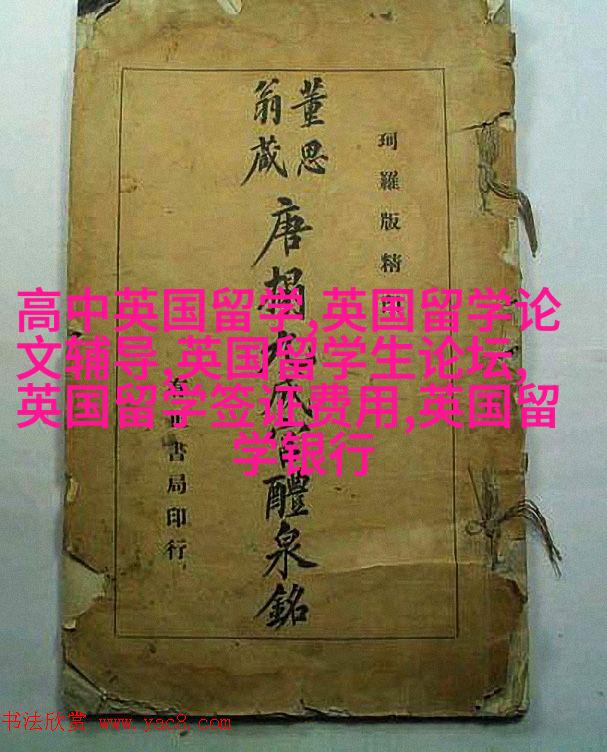 珂羅版精
董思
翁藏
唐搨九成宮醴泉銘
書局印行
高中英国留学,英国留学论
文辅导,英国留学生论坛,
英国留学签证费用,英国留
学银行
书法欣赏 www.yac8.com